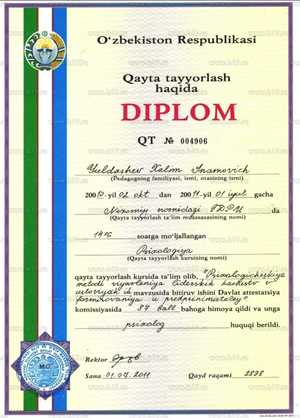 O‘zbekiston Respublikasi
Qayta tayyorlash
haqida
DIPLOM
QT № 004906
Yuldashev Xalim Inamovich
(Pedagogning familiyasi, ismi, otasining ismi)
2010-yil 02 okt dan 2011-yil 01 iyul gacha
Nizomiy nomidagi TDPU da
(Qayta tayyorlash ta'lim muassasasining nomi)
1416 soatga mo‘ljallangan
Psixologiya
(Qayta tayyorlash kursining nomi)
qayta tayyorlash kursida ta'lim olib, "Psixologicheskiy
metodi razvitiya liderskix kachestv v
usloviyax of mavzusida bitiruv ishini Davlat attestatsiya
formirovaniya u predprinimateley"
komissiyasida 87 ball bahoga himoya qildi va unga
psixolog huquqi berildi.
Rektor
Sana 01.07.2011 Qayd raqami 2838
M.O‘.